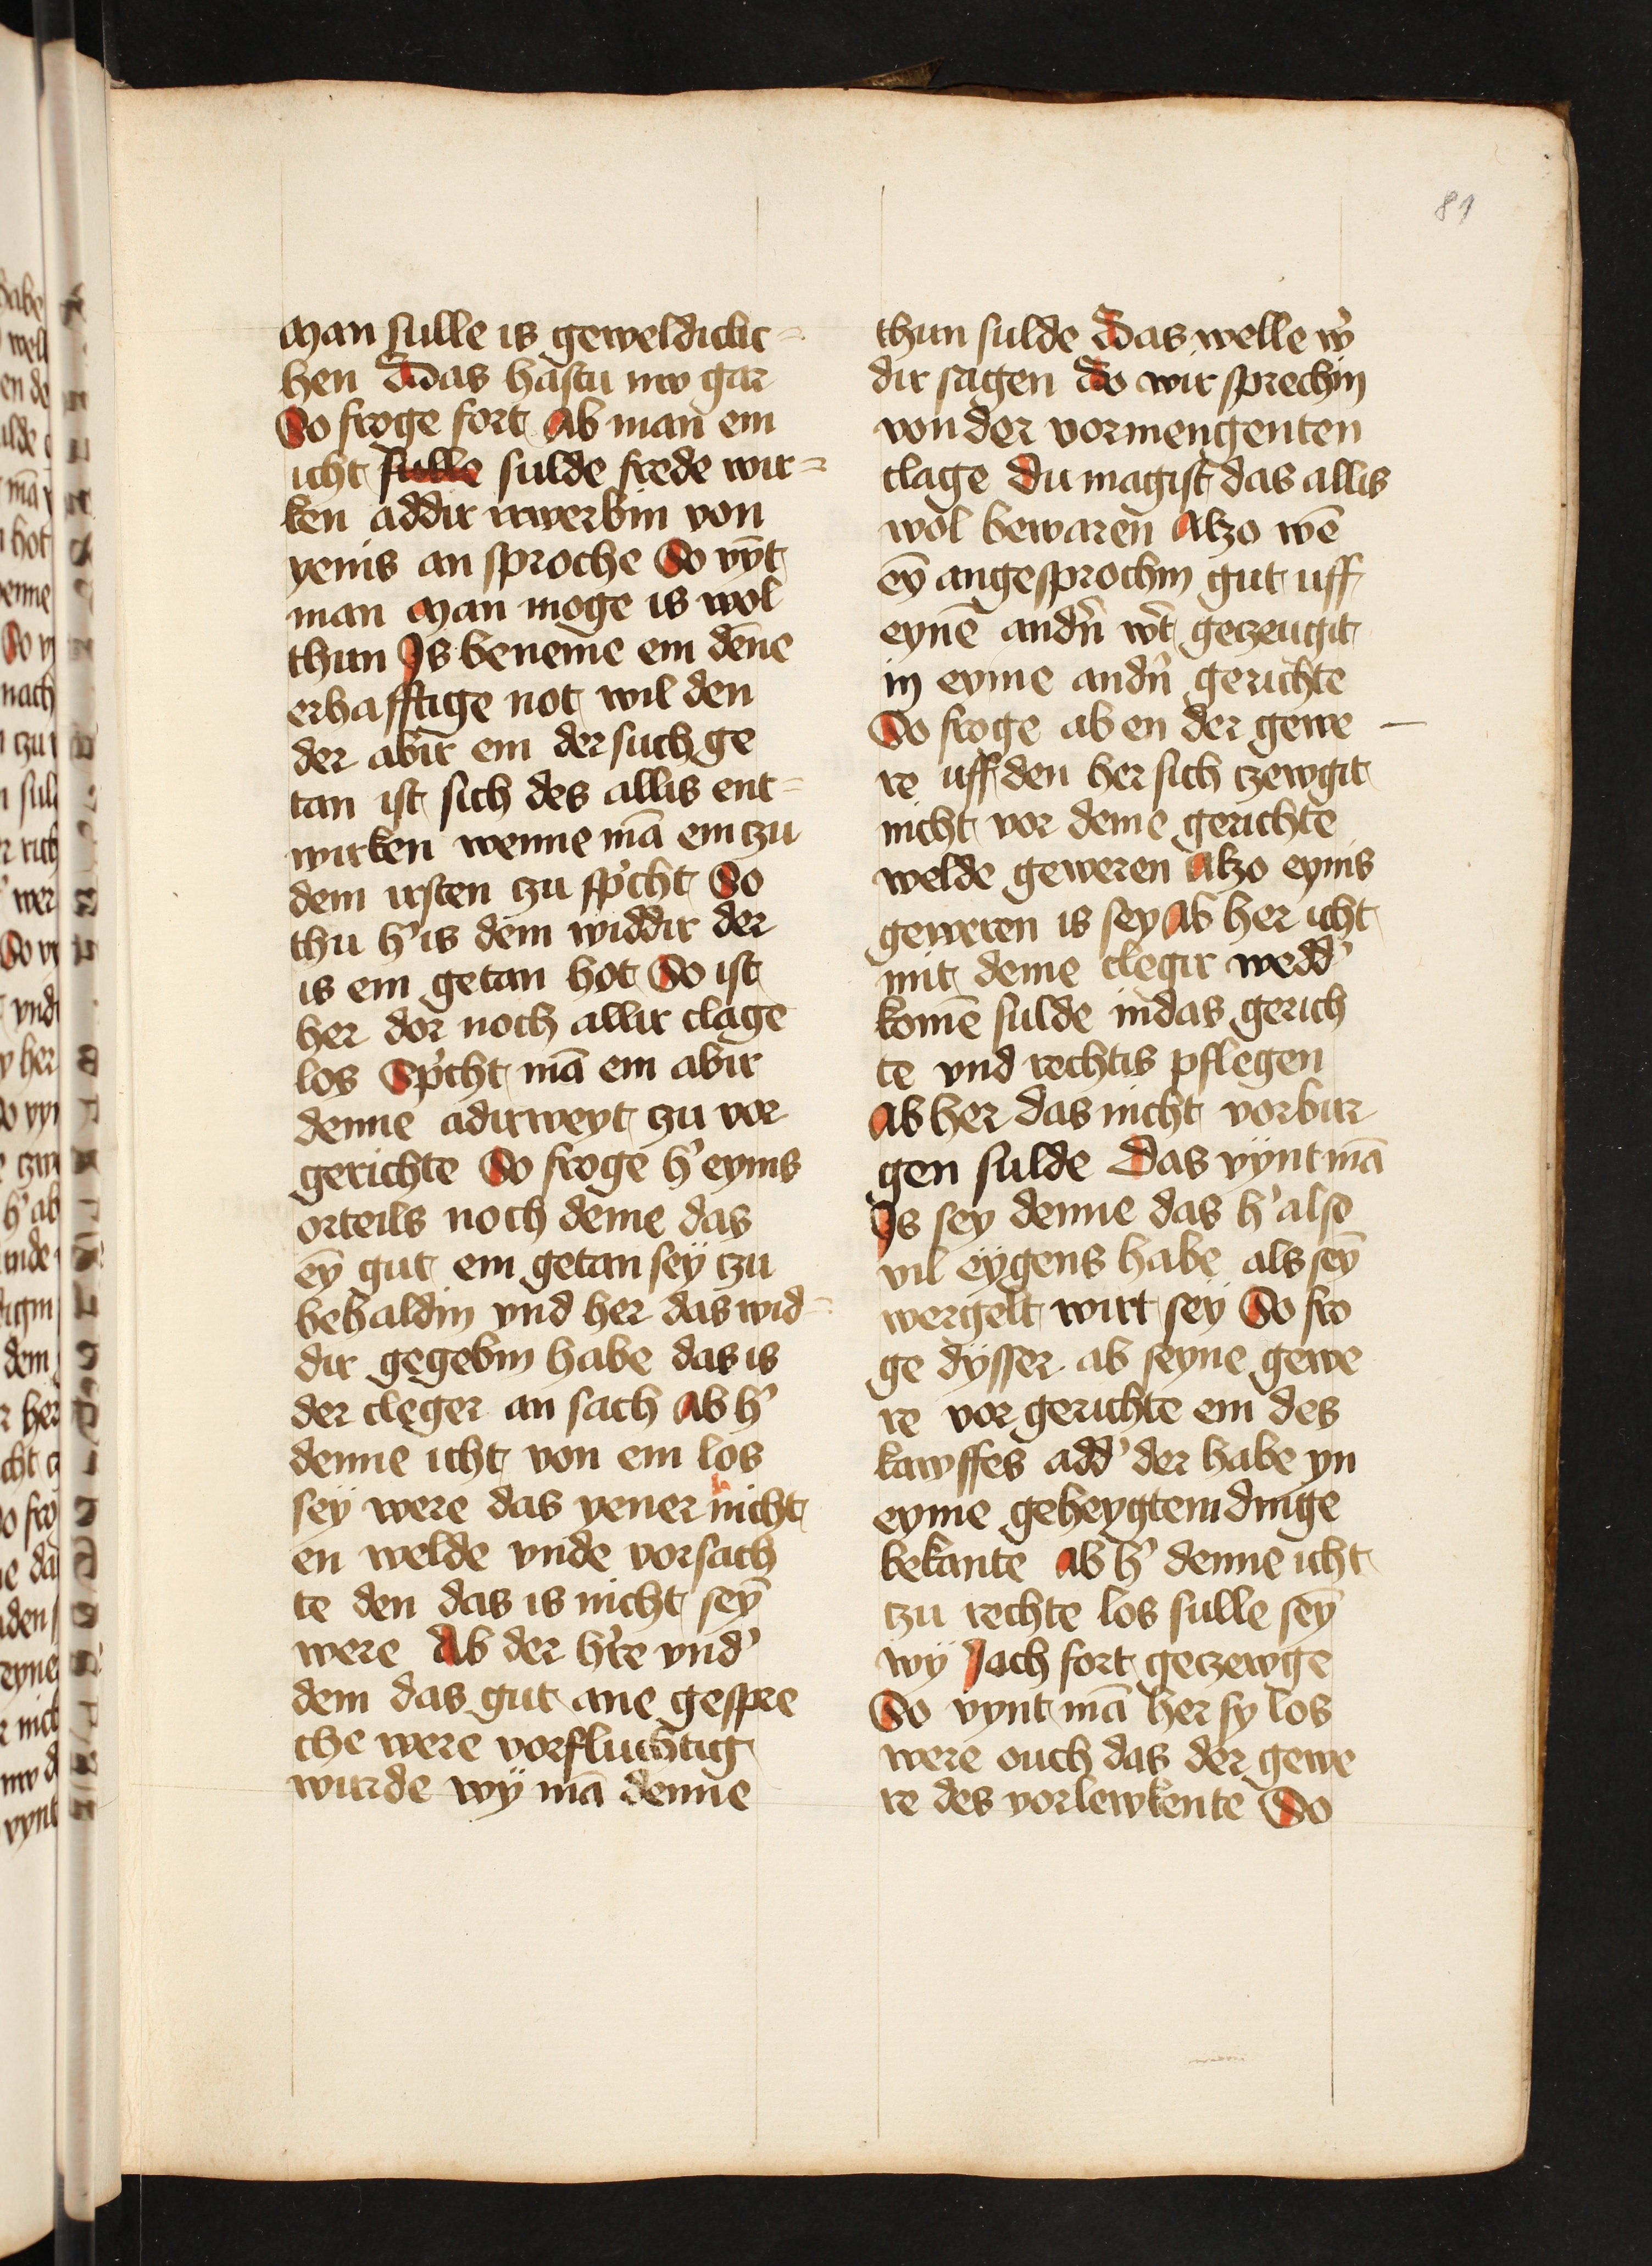 81
man sulle is geweldiclic=
hen Das hastu nw gar
So froge fort Ab man em
icht sulle sulde frede wir=
ken addir irwerbin von
yenis an sproche So vȳt
man man moge is wol
thun Js beneme em dēne
erhafftige not wil den
der abir em der such ge
tan ist sich des allis ent=
wirken wenne mā em tzu
dem irsten tzu sp'cht So
thu h' is dem widdir der
is em getan hot So ist
her dor noch allir clage
los Sp'cht mā em abir
denne adirweyt tzu vor
gerichte So froge h' eynis
orteils noch deme das
eȳ gut em getan seÿ tzu
behaldin vnd her das wid=
dir gegebin habe das is
der cleger an sach Ab h'
denne icht von em los
seÿ were das yener nicht
en welde vnde vorsach
te den das is nicht seȳ
were Ab der h're vnd'
dem das gut ane gespre
che were vorfluchtig
wurde wÿ mā denne
thun sulde Das welle w'
dir sagen do wir sprechin
von der vormengenten
clage Du magist das allis
wol bewaren Alzo wē
eȳ angesprochin gut uff
eynē andn̄ w't geczeugit
in eyme andn̄ gerichte
So froge ab en der gewe
re uff den her sich czewgit
nicht vor deme gerichte
welde geweren Alzo eynis
geweren is sey Ab her icht
mit deme clegir wedd'
komē sulde in das gerich
te vnd rechtis pflegen
Ab her das nicht vorbur
gen sulde Das vÿnt mā
Js sey denne das h' also
vil eÿgens habe als seȳ
wergelt wirt seÿ So fro
ge dÿsser ab seyne gewe
re vor gerichte em des
kawffes add' der habe yn
eyme geheygtem dinge
bekante Ab h' denne icht
tzu rechte los sulle seȳ
wÿ Jach fort geczewge
So vynt mā her sy los
were ouch das der gewe
re des vorlewkente So